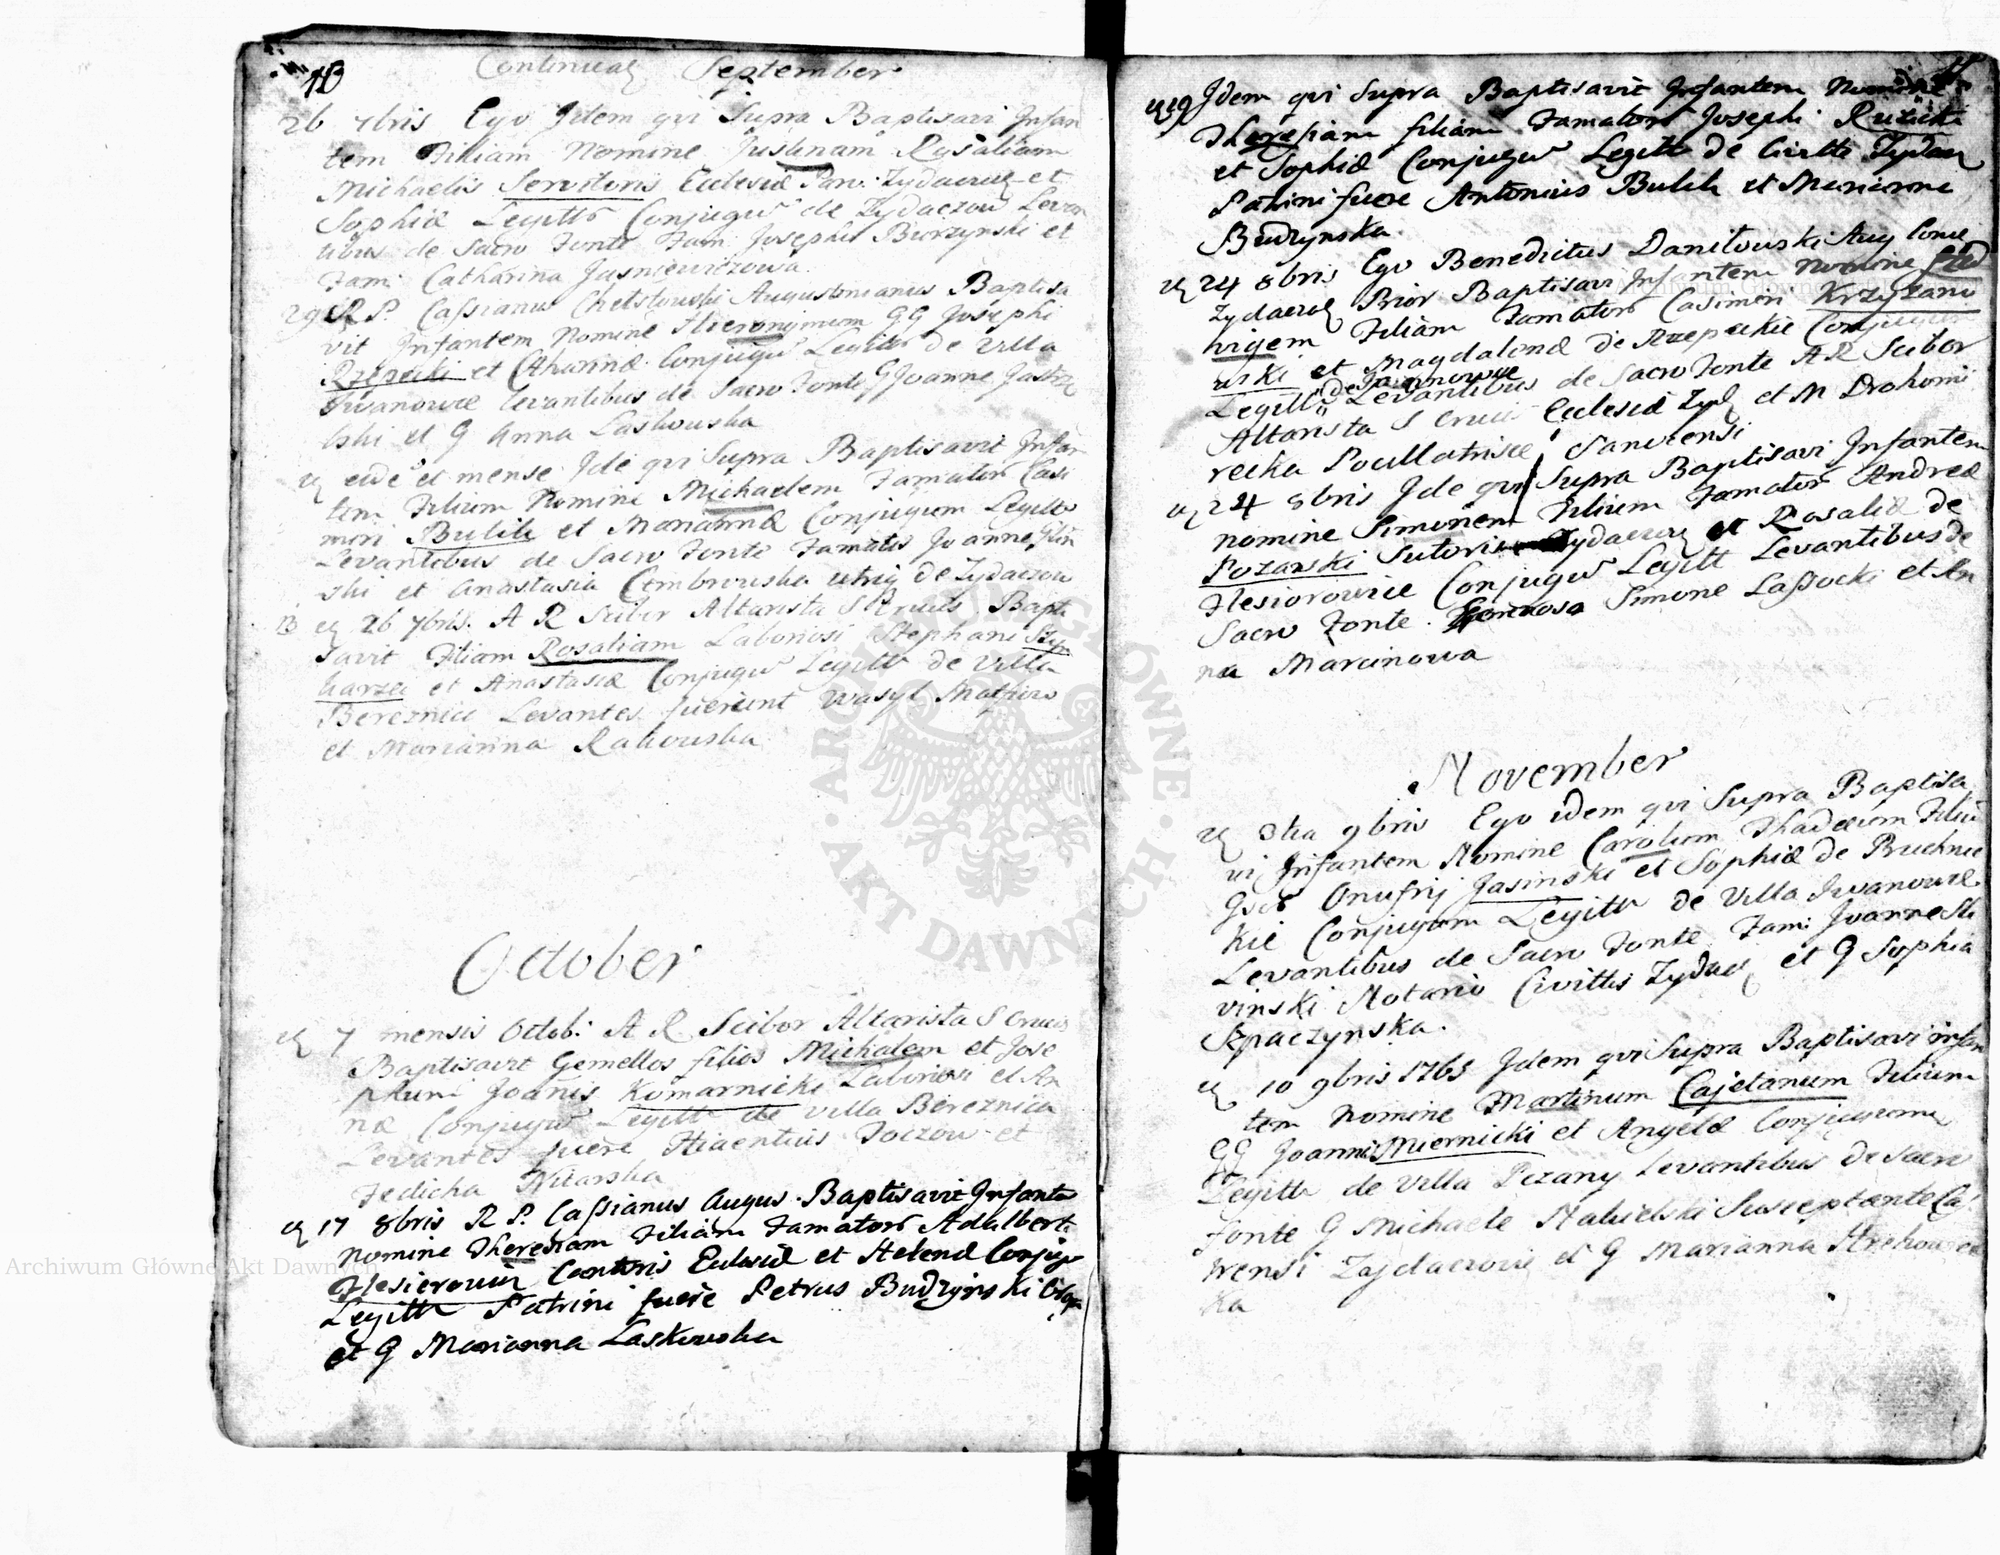 10
Continuat September
26 7bris Ego Idem qui Supra Baptisavi Infan
tem Filiam Nomine Justinam Rosaliam
Michaelis Servitoris Ecclesiæ Par: Zydacz et
Sophiæ Legitt Conjugu de Zydaczow Levan
tibus de Sacro Fonte Fam: Josephi Burzynski et
Fam: Catharina Jusniewiczowa.
29 R P. Cassianus Chelstowski Augustinianus Baptisa
vit Infantem Nomine Hieronimum GG Josephi
Rzepecki et Catharinæ Conjugu Legitt de Villa
Iwanowce Levantibus de Sacro Fonte G Joanne Jastrz
bski et G Anna Laskowska
eide et mense Ide qui Supra Baptisavit Infan
tem Filium Nomine Michaelem Famator Casi
miri Bylik et Mariannæ Conjugum Legitt
Levantibus de Sacro Fonte Famatis Joanne Glin
ski et Anastasia Cembrowska utriq de Zydaczow
13 26 7bris. A R Scibor Altarista S Crucis Bapti
savit Filiam Rosaliam Laboriosi Stephani
harzei et Anastasiæ Conjugu Legitt de Villa
Bereznica Levantes fuerunt Wasyl
et Marianna Rakowska
October
7 mensis Octob: A R Scibor Altarista S Crucis
Baptisavit Gemellos filios Michalem et Jose
phum Joanis Komarnicki Laboriosi et An
næ Conjugu Legitt de Villa Bereznica
Levantes fuere Hiacentius Toczow et
Fedicha
17 8bris R P. Cassianus Augus. Baptisavit Infante
Nomine Theresiam Filiam Famator Adalberti
Flesierowicz Cantoris Ecclesiæ et Helenæ Conjugu
Legitt Patrini fuere Petrus Budzynski
et G Marianna Laskowska
11
19 Idem qui Supra Baptisavit Infantem Nomine
Theresiam filiam Famator Josephi Ruzicki
et Sophiæ Conjugu Legitt de Civitte Zydacz
Patrini fuere Antonius Bulik et Marianna
Budzynska.
24 8bris Ego Benedictus Danilowski Aug Conv
Zydacz Prior Baptisavi Infantem Nomine Hed
wigem Filiam Famator Casimiri Krzyzano
wski et Magdalenæ de Rzepeckie Conjugum
de Iwanowce
Legitt Levantibus de Sacro Fonte A R Scibor
Altarista S Crucis Ecclesiæ Zyd et M Drohomi
recka Pocillatrisce Sanocensi
24 8bris Ide qui Supra Baptisavi Infantem
nomine Simonem Filium Famator Andreæ
Pozarski Sutoris Zydacz et Rosaliæ de
Flesiorowicie Conjugu Legitt Levantibus de
Sacro Fonte Generoso Simone Lassocki et An
na Marcinowa
November
3tia 9bris Ego idem qui Supra Baptisa
vi Infantem Nomine Carolum Thadeum Filiu
Gsor Onufrij Jasinski et Sophiæ de Pruchnic
kie Conjugum Legitt de Villa Iwanowce
Levantibus de Sacro Fonte Fam: Joanne Sli
vinski Notario Civittis Zydacz et G Sophia
Szpaczynska.
10 9bris 1763 Idem qui Supra Baptisavi infan
tem Nomine Martinum Cajetanum Filium
GG Joannis Miernicki et Angelæ Conjugum
Legitt de Villa Pczany Levantibus de Sacro
fonte G Michaele Stabielski Susceptante Ca
wensi Zajdaczowie et G Marianna
ka
ARCHIWUM GŁÓWNE AKT DAWNYCH
Archiwum Główne Akt Dawnych